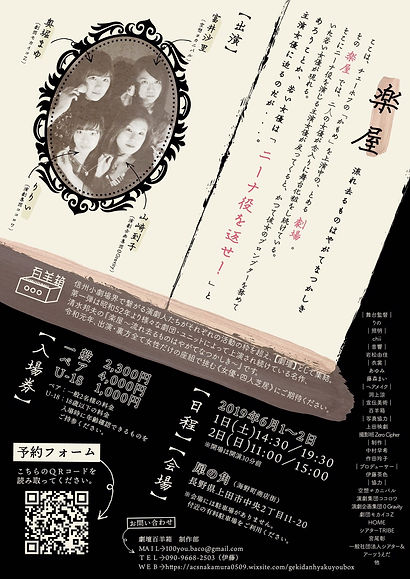 楽屋
流れ去るものはやがてなつかしき
ここは、チェーホフの「かもめ」を上演中の、とある劇場
その楽屋では、二人の女優が念入りに舞台化粧をし続けている。
主演女優に迫るのだが・・・。
「ニーナ役を返せ！」と
【出演】
富井沙里
(空想チカニバル)
奥堀まゆ
(劇団モカイコZ)
山﨑到子
(演劇企画集団0Gravity)
りりい
(演劇集団ココロワ)
百羊箱
信州小劇場界で繋がる演劇人たちがそれぞれの活動の枠を超え、【劇壇】として集結。
第一弾は昭和52年より様々な劇団・ユニットによって上演され続けている名作、
清水邦夫の『楽屋〜流れ去るものはやがてなつかしき〜』です。
令和元年、出演・裏方全て女性だけの座組で挑む《女優・四人芝居》にご期待ください。
【入場券】
一般 2,300円
ペア 4,000円
U-18 1,000円
ペア：一般2名様のもの
U-18：18歳以下の料金
入場時に年齢確認できるものを
ご持参ください。
【日程】
2019年6月1〜2日
1日(土)14:30／19:30
2日(日)11:00／15:00
※開場は開演30分前
【会場】
犀の角（海野町商店街）
長野県上田市中央2丁目11-20
※会場には駐車場がありません。
付近の有料駐車場をご利用ください。
予約フォーム
こちらのQRコードを
読み取ってください。
お問い合わせ
劇壇百羊箱 制作部
MAIL→100you.baco@gmail.com
TEL→090-9668-2503（伊藤）
WEB→https://acsnakamura0509.wixsite.com/gekidanhyakuyoubox
｜舞台監督｜
りの
｜照明｜
chii
｜音響｜
岩松由佳
｜衣裳｜
あゆみ
藤森まい
｜ヘアメイク｜
渕上涼
｜宣伝美術｜
百羊箱
｜写真協力｜
上田映劇
撮影班 Zero Cipher
｜制作｜
中村早希
作田玲子
｜プロデューサー｜
伊藤茶色
｜協力｜
空想チカニバル
演劇集団ココロワ
演劇企画集団0Gravity
劇団モカイコZ
HOME
シアターTRIBE
宮尾彰
一般社団法人シアター＆
アーツうえだ
他